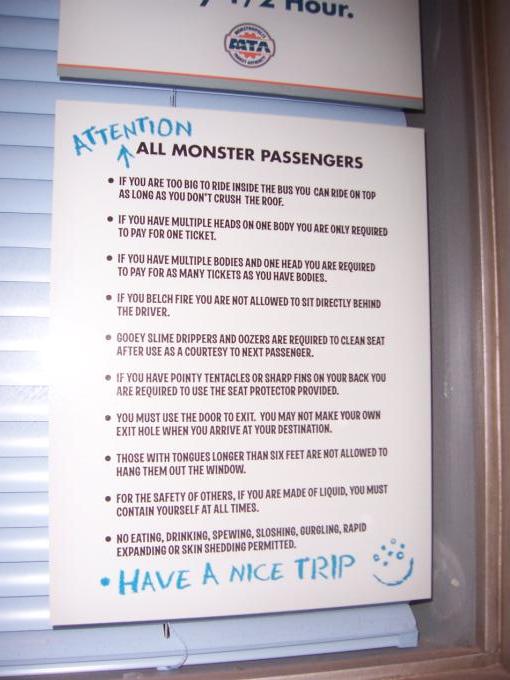 1/2 Hour.
MATA
ATTENTION
ALL MONSTER PASSENGERS
• IF YOU ARE TOO BIG TO RIDE INSIDE THE BUS YOU CAN RIDE ON TOP
AS LONG AS YOU DON'T CRUSH THE ROOF.
• IF YOU HAVE MULTIPLE HEADS ON ONE BODY YOU ARE ONLY REQUIRED
TO PAY FOR ONE TICKET.
• IF YOU HAVE MULTIPLE BODIES AND ONE HEAD YOU ARE REQUIRED
TO PAY FOR AS MANY TICKETS AS YOU HAVE BODIES.
• IF YOU BELCH FIRE YOU ARE NOT ALLOWED TO SIT DIRECTLY BEHIND
THE DRIVER.
• GOOEY SLIME DRIPPERS AND OOZERS ARE REQUIRED TO CLEAN SEAT
AFTER USE AS A COURTESY TO NEXT PASSENGER.
• IF YOU HAVE POINTY TENTACLES OR SHARP FINS ON YOUR BACK YOU
ARE REQUIRED TO USE THE SEAT PROTECTOR PROVIDED.
• YOU MUST USE THE DOOR TO EXIT. YOU MAY NOT MAKE YOUR OWN
EXIT HOLE WHEN YOU ARRIVE AT YOUR DESTINATION.
• THOSE WITH TONGUES LONGER THAN SIX FEET ARE NOT ALLOWED TO
HANG THEM OUT THE WINDOW.
• FOR THE SAFETY OF OTHERS, IF YOU ARE MADE OF LIQUID, YOU MUST
CONTAIN YOURSELF AT ALL TIMES.
• NO EATING, DRINKING, SPEWING, SLOSHING, GURGLING, RAPID
EXPANDING OR SKIN SHEDDING PERMITTED.
• HAVE A NICE TRIP